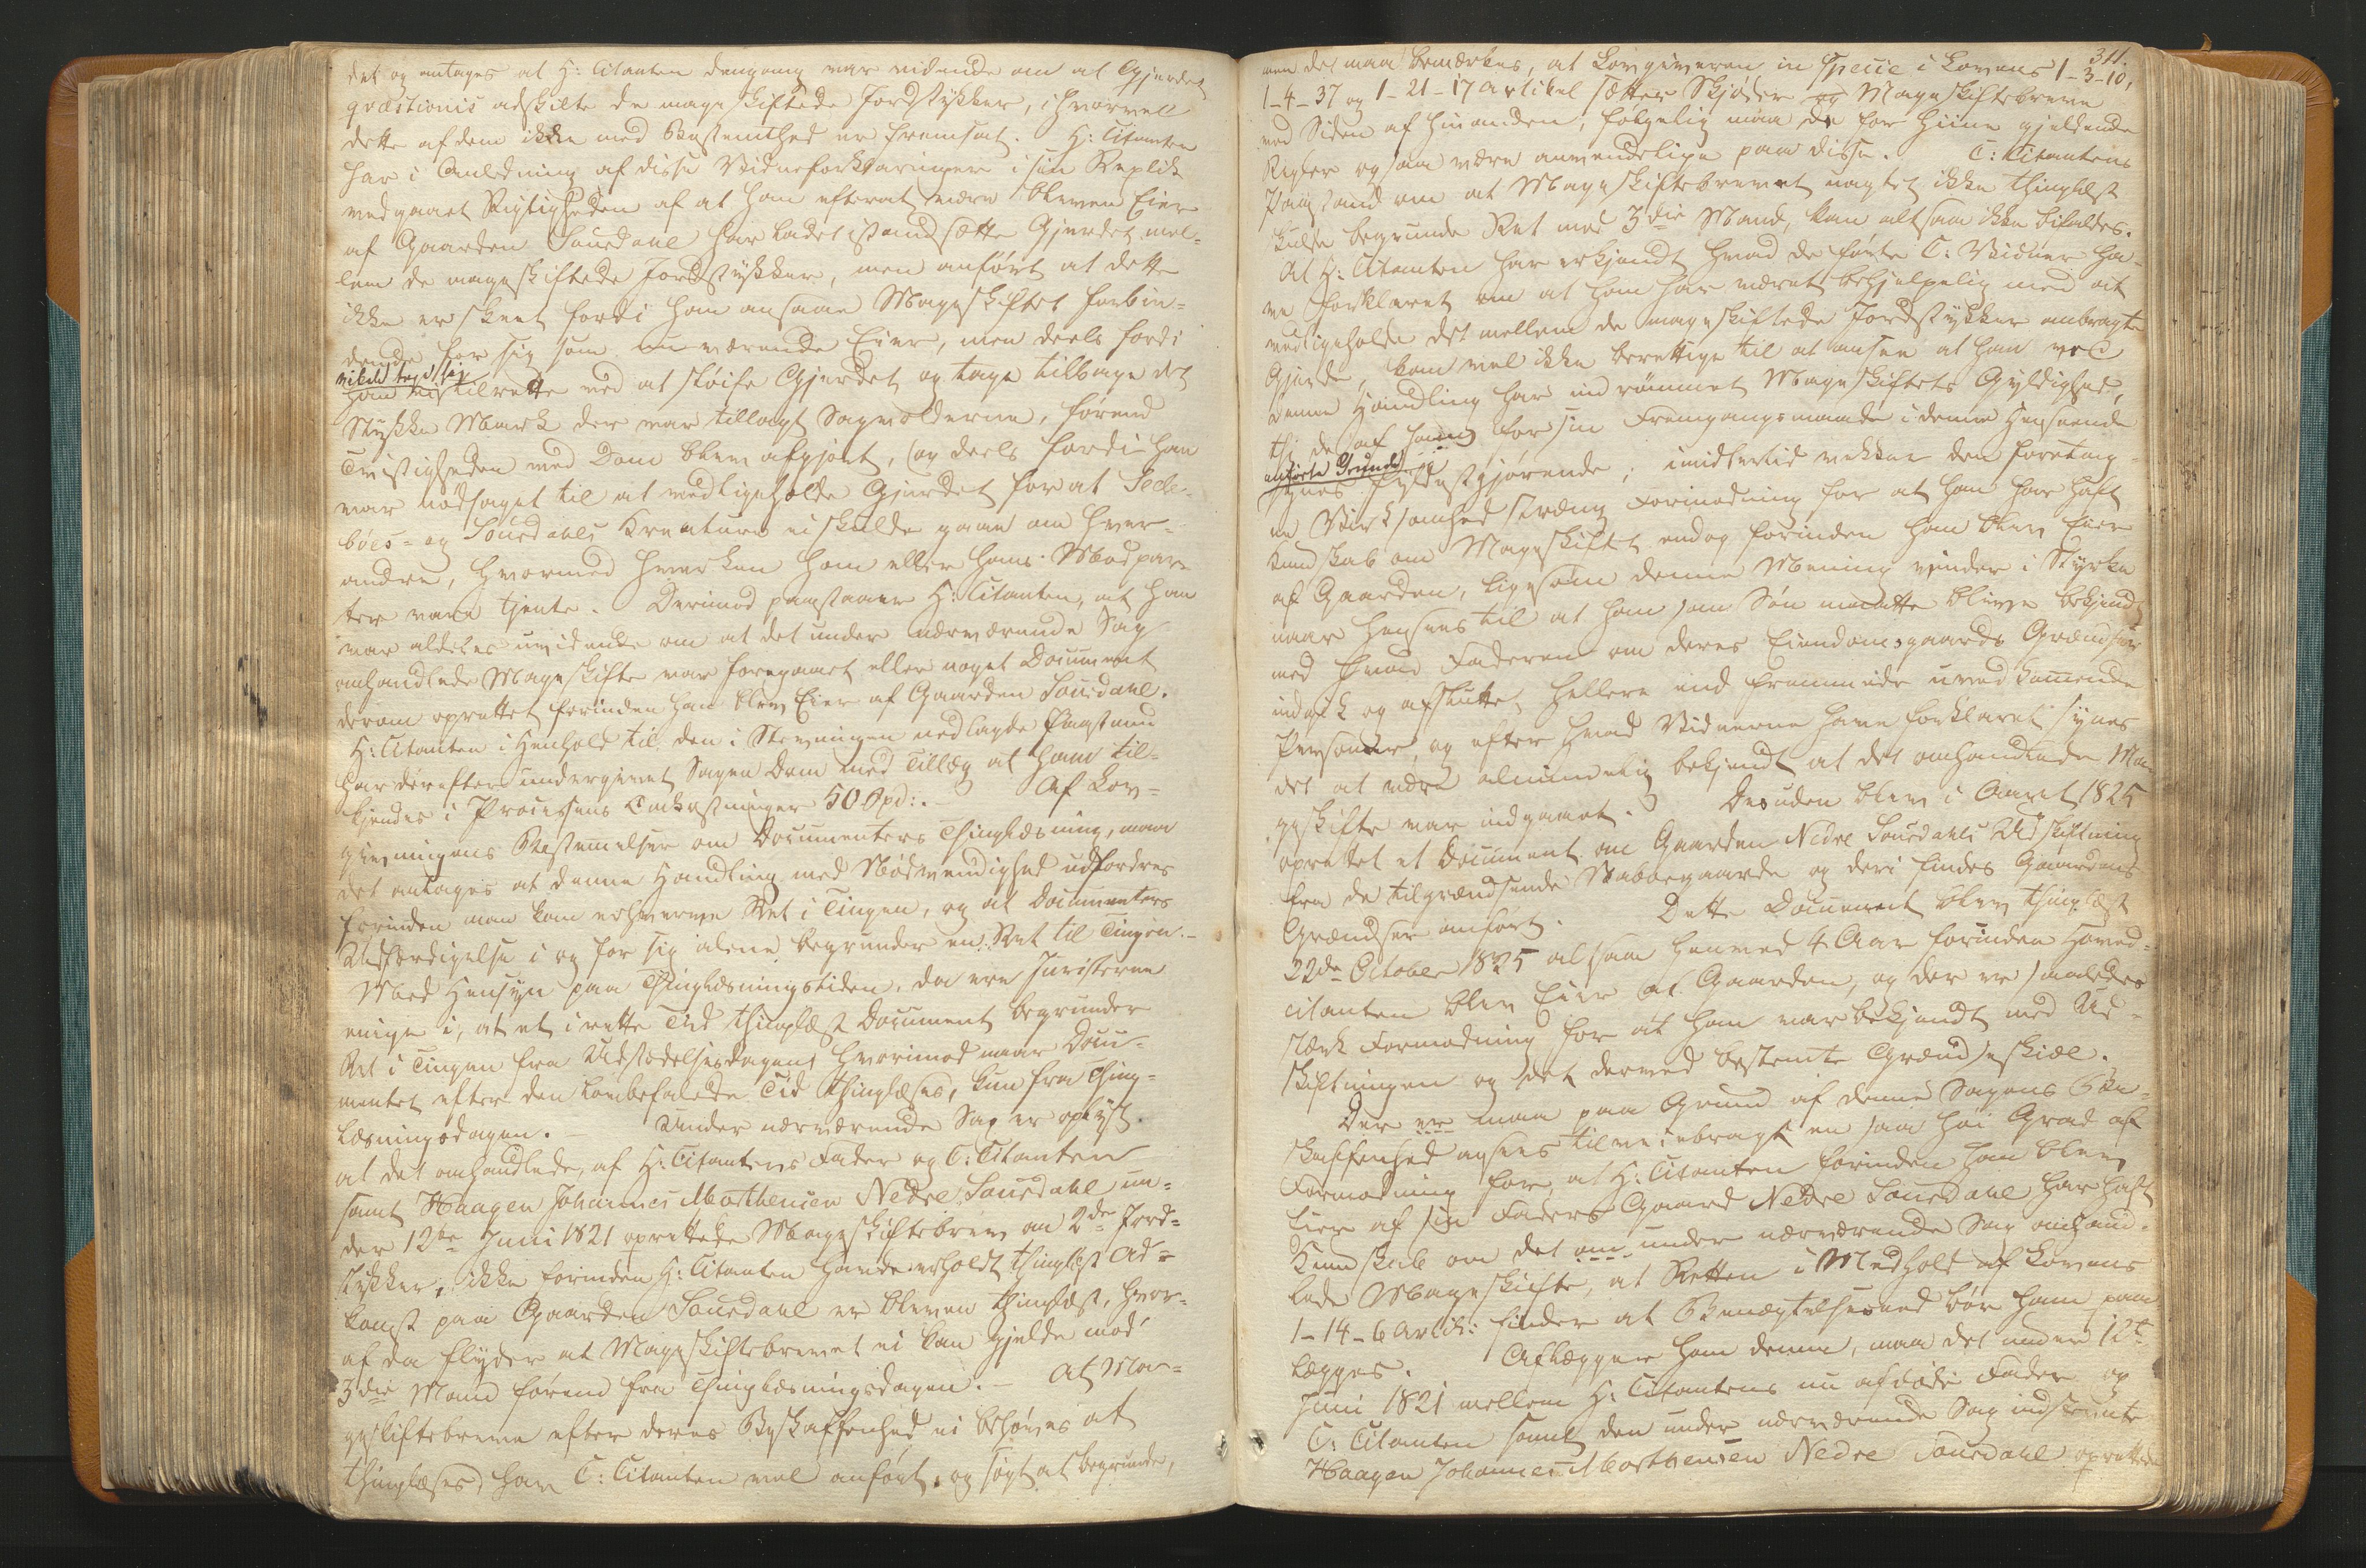 det og antages at H: Citanten dengang var vidende om at Gjerdet
qvæstionis adskilte de mageskiftede Jordstykker, ihvorvel
dette af dem ikke med Bestemthed er fremsat. H: Citanten
har i Anledning af disse Vidneforklaringer i sin Replik
vedgaaet Rigtigheden af at han efterat være bleven Eier
af Gaarden Souedahl har ladet istandsætte Gjerdet mel-
lem de mageskiftede Jordstykker, men anført at dette
ikke er skeet fordi han ansaae Mageskiftet forbin-
dende for sig som nu værende Eier, men deels fordi
vilde tage sig
han tilrette ved at sløife Gjerdet og tage tilbage det
Stykke Mark der var tillagt Sagvolderne, førend
Tvistigheden ved Dom blev afgjort, og deels fordi han
var nødsaget til at vedligeholde Gjerdet for at Sede-
bøes- og Souedahls Kreature ei skulde gaae om hver-
andre, hvormed hverken han eller hans Modpar-
ter vare tjente. Derimod paastaaer H: Citanten, at han
var aldeles uvidende om at det under nærværende Sag
omhandlede Mageskifte var foregaaet eller noget Document
derom oprettet forinden han blev Eier af Gaarden Souedahl.
H: Citanten i Henhold til den i Stevningen nedlagde Paastand
har derefter undergivet Sagen Dom med Tillæg at ham til-
kjendes i Processens Omkostninger 50 Spd:. – Af Lov-
givningens Bestemmelser om Documenters Thinglæsning, maa
det antages at denne Handling med Nødvendighed udfordres
forinden man kan erhverve Ret i Tingen, og at Documenters
Udfærdigelse i og for sig alene begrunder en Ret til Tingen. –
Med Hensyn paa Thinglæsningstiden, da ere Juristerne
enige i, at et i rette Tid thinglæst Document begrunder
Ret i Tingen fra Udstædelsesdagen, hvorimod naar Docu-
mentet efter den lovbefalede Tid thinglæses, kun fra Thing-
læsningsdagen. – Under nærværende Sag er oplyst
at det omhandlede, af H: Citantens Fader og C: Citanten
samt Haagen Johannes Morthensen Nedre Souedahl un-
der 12te Juni 1821 oprettede Mageskiftebrev om 2de Jord-
stykker, ikke forinden H: Citanten havde erholdt thinglæst Ad-
komst paa Gaarden Souedahl er bleven thinglæst, hvor-
af da flyder at Mageskiftebrevet ei kan gjelde mod
3die Mand førend fra Thinglæsningsdagen. – At Ma-
geskiftebreve efter deres Beskaffenhed ei behøves at
thinglæses, har C: Citanten vel anført og søgt at begrunde,
311.
men det maa bemærkes, at Lovgiveren in Specie i Lovens 1-3-10,
1-4-37 og 1-21-17 Artikel sætter Skjøder og Mageskiftebreve
ved Siden af hinanden, følgelig maa de for hiine gjeldende
Regler ogsaa være anvendelige paa disse. C: Citantens
Paastand om at Mageskiftebrevet uagtet ikke thinglæst
skulde begrunde Ret mod 3die Mand, kan altsaa ikke bifaldes.
At H: Citanten har erkjendt hvad de førte C: Vidner ha-
ve forklaret om at han har været behjelpelig med at
vedligeholde det mellem de mageskiftede Jordstykker anbragte
Gjerde, kan vel ikke berettige til at ansee at han ved
denne Handling har indrømmet Mageskiftets Gyldighed,
thi de af ham for sin Fremgangsmaade i denne Henseende
anførte Grunde
synes fyldestgjørende; imidlertid vækker den foretag-
ne Virksomhed stræng Formodning for at han har haft
Kundskab om Mageskiftet endog forinden han blev Eier
af Gaarden, ligesom denne Mening vinder i Styrke
naar hensees til at han som Søn maatte blive bekjendt
med hvad Faderen om deres Eiendomsgaards Grændser
indgik og afsluttet, hellere end fremmede uvedkommende
Personer, og efter hvad Vidnerne have forklaret synes
det at være almindelig bekjendt at det omhandlede Ma-
geskifte var indgaaet. Desuden blev i Aaret 1825
oprettet et Document om Gaarden Nedre Souedahls Udskiftning
fra de tilgrændsende Naboegaarde og deri findes Gaardens
Grændser anført. Dette Document blev thinglæst
22de October 1825 altsaa henved 4 Aar forinden Hoved-
citanten blev Eier af Gaarden, og der er saaledes
stærk Formodning for at han var bekjendt med Ud-
skiftningen og det derved bestemte Grændseskiel.
Der er maa paa Grund af denne Sagens Be-
skaffenhed ansees tilveiebragt en saa høi Grad af
Formodning for, at H: Citanten forinden han blev
Eier af sin Faders Gaard Nedre Souedahl har haft
Kundskab om det om under nærværende Sag omhand-
lede Mageskifte, at Retten i Medhold af Lovens
1-14-6 Artik: finder at Benægtelseseed bør ham paa-
lægges. Aflægger han denne, maa det under 12te
Juni 1821 mellem H: Citantens nu afdøde Fader og
C: Citanten samt den under nærværende Sag indstevnte
Haagen Johannes Morthensen Nedre Souedahl oprettede